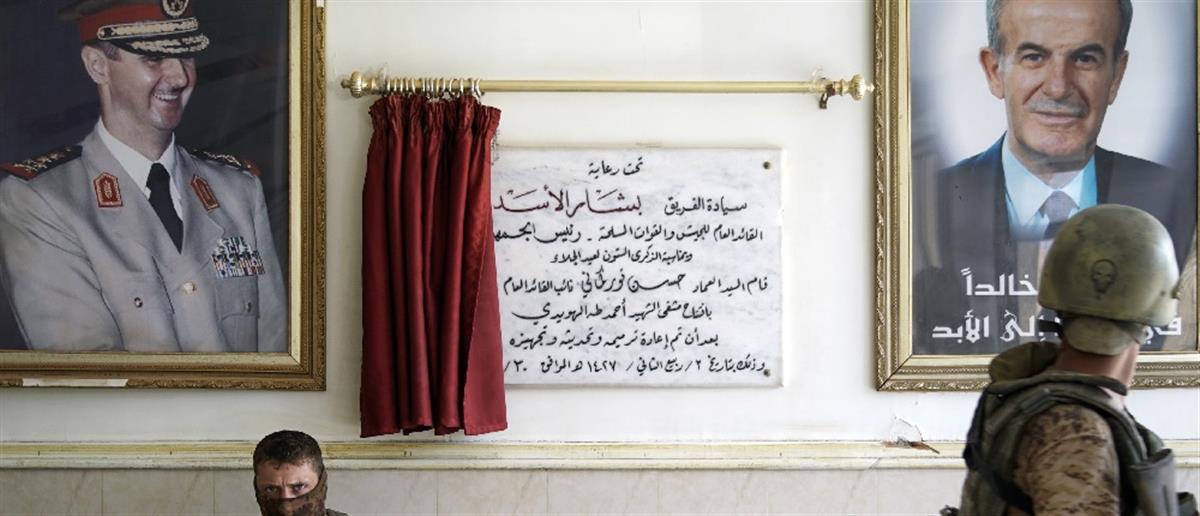 تحت رعاية
سيادة الفريق بشار الأسد
القائد العام للجيش والقوات المسلحة - رئيس الجمه
وبمناسبة الذكرى الستون لعيد الجلاء
قام السيد العماد حسن توركماني نائب القائد العام
بافتتاح مشفى الشهيد أحمد طه الهويدي
بعد أن تم إعادة ترميمه وتحديثه وتجهيزه
وذلك بتاريخ ٢ / ربيع الثاني / ١٤٢٧ هـ الموافق ٣٠ /
خالداً
إلى الأبد